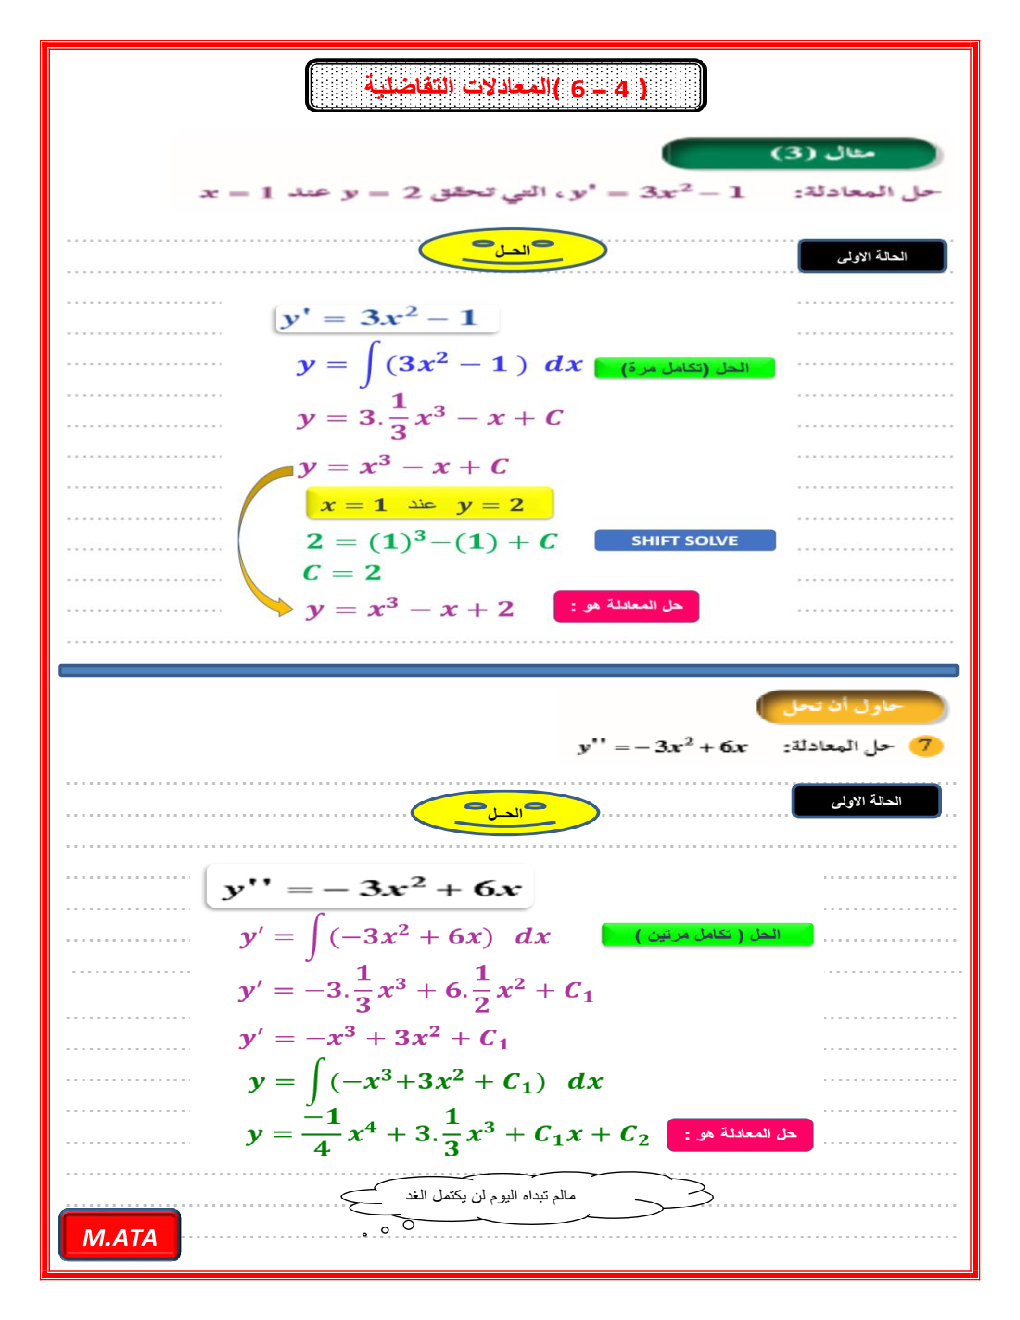 ( 4 – 6 )المعادلات التفاضلية
مثال (3)
حل المعادلة: y' = 3x² − 1 ، التي تحقق y = 2 عند x = 1
الحــل
الحالة الاولى
y' = 3x² − 1
y = ∫(3x² − 1 ) dx
الحل (تكامل مرة)
y = 3.1/3 x³ − x + C
y = x³ − x + C
x = 1 عند y = 2
2 = (1)³−(1) + C
SHIFT SOLVE
C = 2
y = x³ − x + 2
حل المعادلة هو :
حاول أن تحل
7 حل المعادلة: y'' = − 3x² + 6x
الحالة الاولى
الحــل
y'' = − 3x² + 6x
y′ = ∫(−3x² + 6x) dx
الحل ( تكامل مرتين )
y′ = −3.1/3 x³ + 6.1/2 x² + C₁
y′ = −x³ + 3x² + C₁
y = ∫(−x³+3x² + C₁) dx
y = −1/4 x⁴ + 3.1/3 x³ + C₁x + C₂
حل المعادلة هو :
مالم تبداه اليوم لن يكتمل الغد
M.ATA